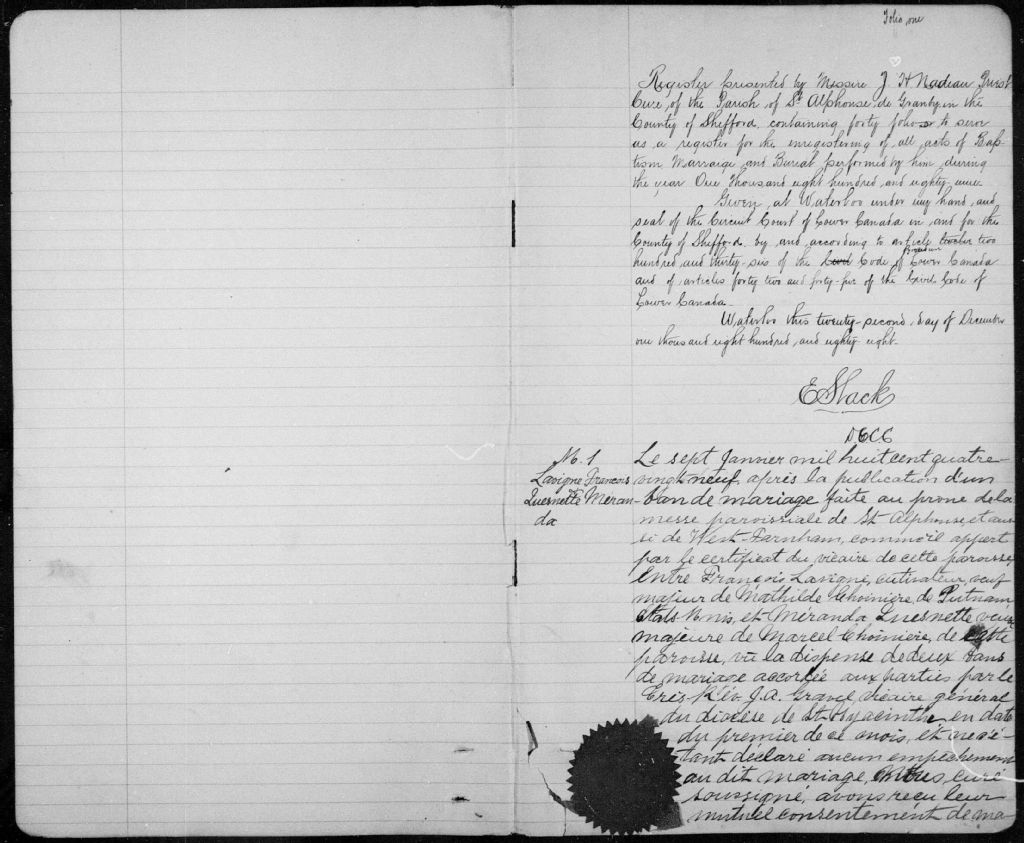 Folio one
Register presented by Messire J. H Nadeau Priest
Curé, of the Parish of St Alphonse de Granby, in the
County of Shefford, containing forty folios to serve
as a register for the enregistering of all acts of Bap-
tism, Marraige and Burial performed by him, during
the year One Thousand eight hundred and eighty-nine.
Given, at Waterloo under my hand, and
seal of the Circuit Court of Lower Canada in and for the
County of Shefford, by and according to article twelve two
hundred and thirty-six of the Civil Code of Lower Canada
and of articles forty two and forty-five of the Civil Code of
Lower Canada.
Waterloo this twenty-second, day of December
one thousand eight hundred, and eighty eight.
E Slack
DCCC
No. 1
Lavigne Francois
Quesnette Meran-
da
Le sept Janvier mil huit cent quatre-
vingt neuf, après la publication d'un
ban de mariage faite au prone de la
messe paroissiale de St Alphonse, et aus-
si de West-Farnham, comme il appert
par le certificat du vicaire de cette paroisse,
Entre François Lavigne, cutivateur, veuf
majeur de Mathilde Choinière, de Putnam
Etats Unis, et Méranda Quesnette veuve
majeure de Marcel Choinière, de cette
paroisse, vu la dispense de deux bans
de mariage accordée aux parties par le
Très Rév. J. A. Gravel, vicaire général
du diocèse de St Hyacinthe, en date
du premier de ce mois, et ne s'é-
tant déclaré aucun empêchement
au dit mariage, Nous curé
soussigné, avons reçu leur
mutuel consentement de ma-